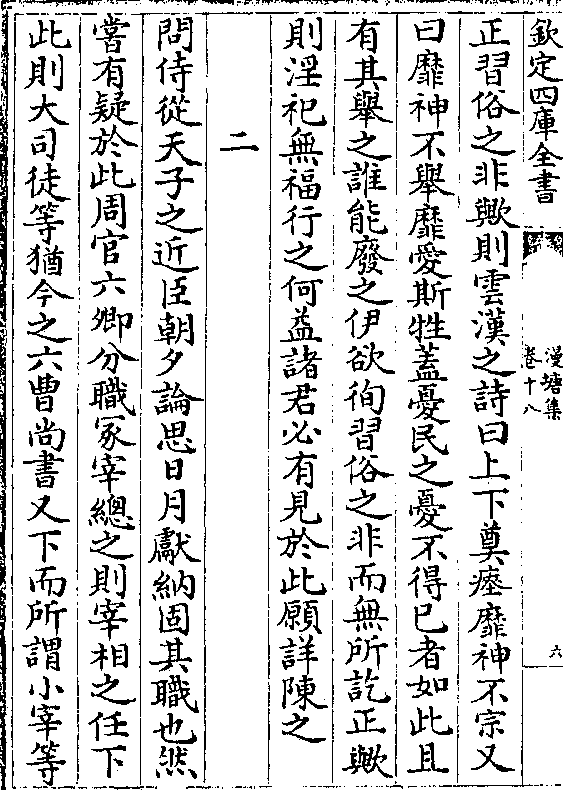 欽定四庫全書
漫塘集
卷十八
六
正習俗之非歟則雲漢之詩曰上下奠瘞靡神不宗又
曰靡神不舉靡愛斯牲蓋憂民之憂不得已者如此且
有其舉之誰能廢之伊欲徇習俗之非而無所訖正歟
則淫祀無福行之何益諸君必有見於此願詳陳之
二
問侍從天子之近臣朝夕論思日月獻納固其職也然
嘗有疑於此周官六卿分職冢宰總之則宰相之任下
此則大司徒等猶今之六曹尚書又下而所謂小宰等